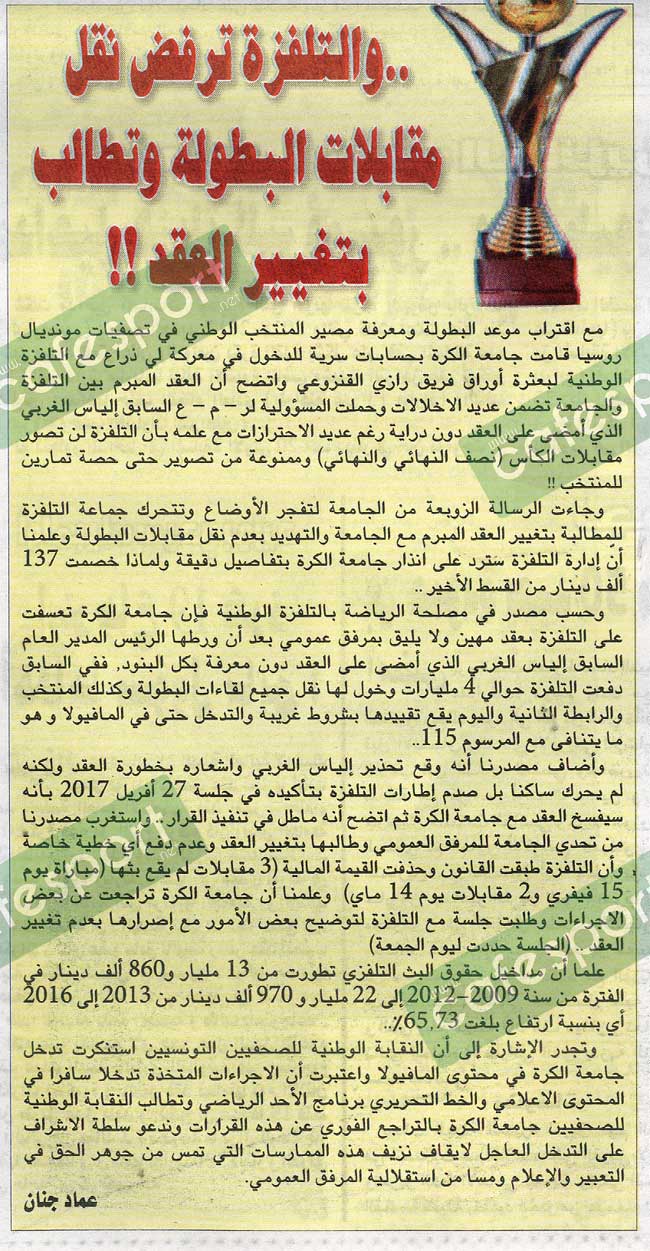 ..والتلفزة ترفض نقل
مقابلات البطولة وتطالب
بتغيير العقد !!
مع اقتراب موعد البطولة ومعرفة مصير المنتخب الوطني في تصفيات مونديال
روسيا قامت جامعة الكرة بحسابات سرية للدخول في معركة لي ذراع مع التلفزة
الوطنية لبعثرة أوراق فريق رازي القنزوعي واتضح أن العقد المبرم بين التلفزة
والجامعة تضمن عديد الاخلالات وحملت المسؤولية لر – م – ع السابق إلياس الغربي
الذي أمضى على العقد دون دراية رغم عديد الاحترازات مع علمه بأن التلفزة لن تصور
مقابلات الكأس (نصف النهائي والنهائي) وممنوعة من تصوير حتى حصة تمارين
للمنتخب !!
وجاءت الرسالة الزوبعة من الجامعة لتفجر الأوضاع وتتحرك جماعة التلفزة
للمطالبة بتغيير العقد المبرم مع الجامعة والتهديد بعدم نقل مقابلات البطولة وعلمنا
أن إدارة التلفزة سترد على انذار جامعة الكرة بتفاصيل دقيقة ولماذا خصمت 137
ألف دينار من القسط الأخير ..
وحسب مصدر في مصلحة الرياضة بالتلفزة الوطنية فإن جامعة الكرة تعسفت
على التلفزة بعقد مهين ولا يليق بمرفق عمومي بعد أن ورطها الرئيس المدير العام
السابق إلياس الغربي الذي أمضى على العقد دون معرفة بكل البنود, ففي السابق
دفعت التلفزة حوالي 4 مليارات وخول لها نقل جميع لقاءات البطولة وكذلك المنتخب
والرابطة الثانية واليوم يقع تقييدها بشروط غريبة والتدخل حتى في المافيولا و هو
ما يتنافى مع المرسوم 115..
وأضاف مصدرنا أنه وقع تحذير إلياس الغربي واشعاره بخطورة العقد ولكنه
لم يحرك ساكنا بل صدم إطارات التلفزة بتأكيده في جلسة 27 أفريل 2017 بأنه
سيفسخ العقد مع جامعة الكرة ثم اتضح أنه ماطل في تنفيذ القرار .. واستغرب مصدرنا
من تحدي الجامعة للمرفق العمومي وطالبها بتغيير العقد وعدم دفع أي خطية خاصة
وأن التلفزة طبقت القانون وحذفت القيمة المالية (3 مقابلات لم يقع بثها (مباراة يوم
15 فيفري و2 مقابلات يوم 14 ماي) وعلمنا أن جامعة الكرة تراجعت عن بعض
الاجراءات وطلبت جلسة مع التلفزة لتوضيح بعض الأمور مع إصرارها بعدم تغيير
العقد .. (الجلسة حددت ليوم الجمعة)
علما أن مداخيل حقوق البث التلفزي تطورت من 13 مليار و860 ألف دينار في
الفترة من سنة 2009–2012 إلى 22 مليار و 970 ألف دينار من 2013 إلى 2016
أي بنسبة ارتفاع بلغت 65,73٪..
وتجدر الإشارة إلى أن النقابة الوطنية للصحفيين التونسيين استنكرت تدخل
جامعة الكرة في محتوى المافيولا واعتبرت أن الاجراءات المتخذة تدخلا سافرا في
المحتوى الاعلامي والخط التحريري برنامج الأحد الرياضي وتطالب النقابة الوطنية
للصحفيين جامعة الكرة بالتراجع الفوري عن هذه القرارات وندعو سلطة الاشراف
على التدخل العاجل لايقاف نزيف هذه الممارسات التي تمس من جوهر الحق في
التعبير والإعلام ومسا من استقلالية المرفق العمومي.
عماد جنان
www.cafesport.net